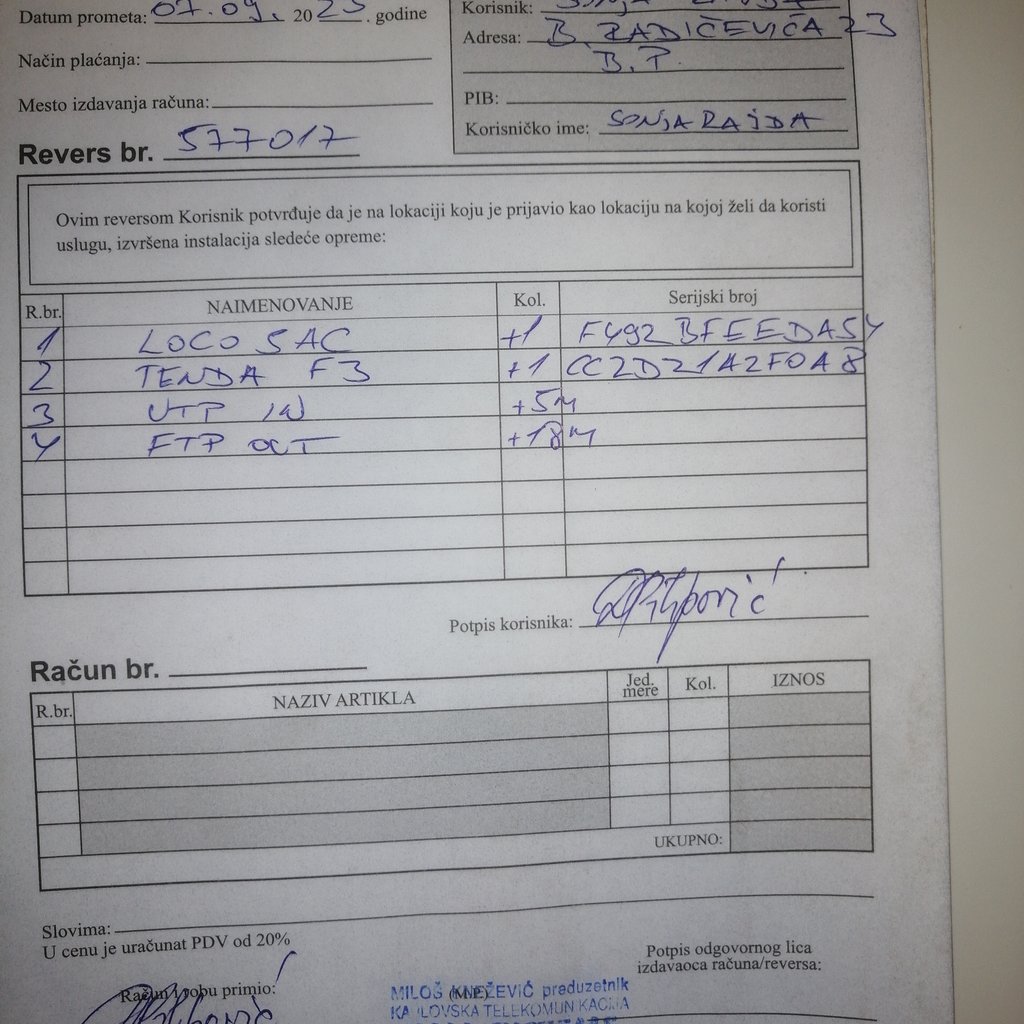 Datum prometa: 07.09. 2023. godine
Korisnik:
Adresa: B. RADIČEVIĆA 23
B. P.
Način plaćanja:
Mesto izdavanja računa:
PIB:
Korisničko ime: SONJARAJDA
Revers br. 577017
Ovim reversom Korisnik potvrđuje da je na lokaciji koju je prijavio kao lokaciju na kojoj želi da koristi
uslugu, izvršena instalacija sledeće opreme:
R.br. NAIMENOVANJE Kol. Serijski broj
1 LOCO 5AC +1 F492BFEEDA54
2 TENDA F3 +1 CC2D21A2F0A8
3 UTP IN +5M
4 FTP OUT +18M
Potpis korisnika:
Račun br.
R.br. NAZIV ARTIKLA Jed. mere Kol. IZNOS
UKUPNO:
Slovima:
U cenu je uračunat PDV od 20%
Račun i robu primio:
Potpis odgovornog lica
izdavaoca računa/reversa:
(M.P.)
MILOŠ KNEŽEVIĆ preduzetnik
KARLOVSKA TELEKOMUNIKACIJA